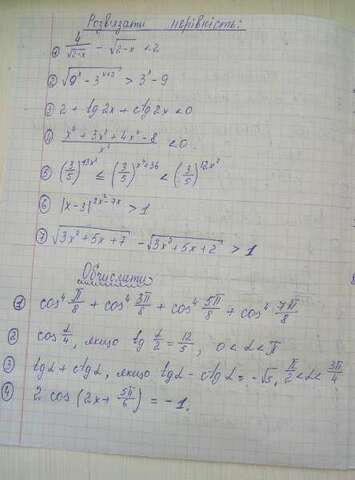 Розв'язати нерівність:
1 4/√(2-x) - √(2-x) < 2
2 √(9ˣ - 3ˣ⁺²) > 3ˣ - 9
3 2 + tg2x + ctg2x < 0
4 (x⁴ + 3x³ + 4x² - 8)/x² < 0.
5 (3/5)^(13x²) ≤ (3/5)^(x⁴+36) < (3/5)^(12x²)
6 |x-3|^(2x²-7x) > 1
7 √(3x²+5x+7) - √(3x²+5x+2) > 1
Обчислити
1 cos⁴ π/8 + cos⁴ 3π/8 + cos⁴ 5π/8 + cos⁴ 7π/8
2 cos α/4, якщо tg α/2 = 12/5, 0 < α < π
3 tgα + ctgα, якщо tgα - ctgα = -√5, π/2 < α < 3π/4
4 2 cos (2x + 5π/6) = -1.